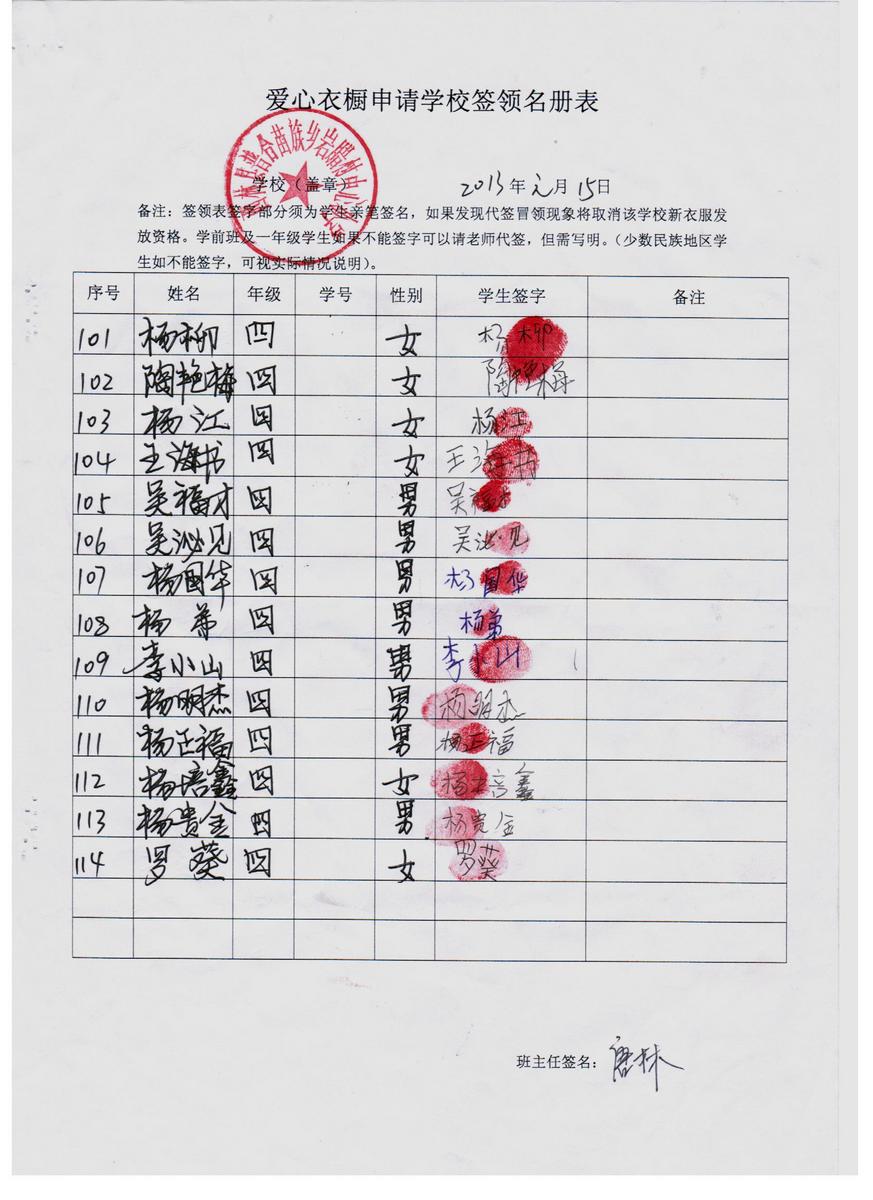 爱心衣橱申请学校签领名册表
学校（盖章）
2013年元月15日
备注：签领表签字部分须为学生亲笔签名，如果发现代签冒领现象将取消该学校新衣服发
放资格。学前班及一年级学生如果不能签字可以请老师代签，但需写明。（少数民族地区学
生如不能签字，可视实际情况说明）。
序号 姓名 年级 学号 性别 学生签字 备注
101 杨柳 四 女 杨柳
102 陶艳梅 四 女 陶艳梅
103 杨江 四 女 杨江
104 王海书 四 女 王海书
105 吴福才 四 男 吴福才
106 吴泌见 四 男 吴泌见
107 杨国华 四 男 杨国华
108 杨弟 四 男 杨弟
109 李小山 四 男 李小山
110 杨明杰 四 男 杨明杰
111 杨正福 四 男 杨正福
112 杨培鑫 四 女 杨培鑫
113 杨贵金 四 男 杨贵金
114 罗葵 四 女 罗葵
班主任签名：唐林